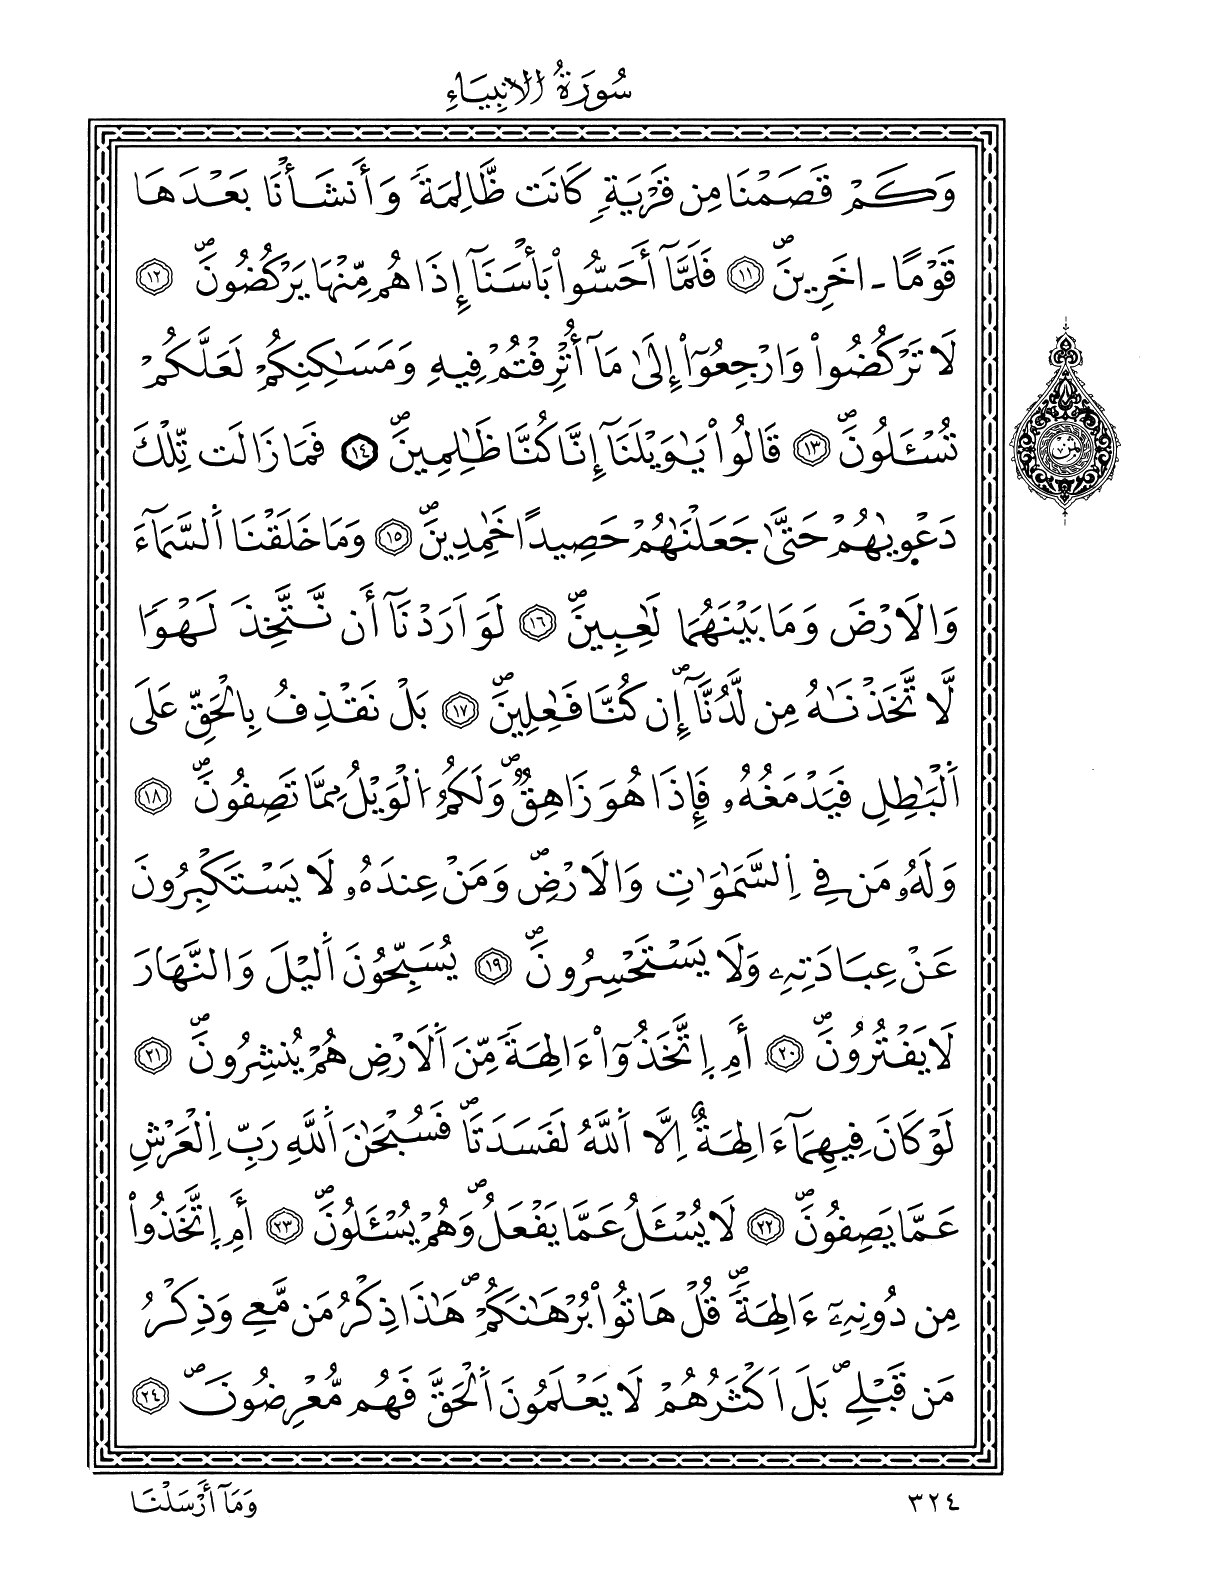 سُورَةُ الانبِيَاءِ
وَكَمْ قَصَمْنَا مِن قَرْيَةٖ كَانَت ظَّالِمَةٗ وَأَنشَأْنَا بَعْدَهَا
قَوْمًا ـ اخَرِينَۖ ١١ فَلَمَّآ أَحَسُّواْ بَأْسَنَآ إِذَا هُم مِّنْهَا يَرْكُضُونَۖ ١٢
لَا تَرْكُضُواْ وَارْجِعُوٓاْ إِلَىٰ مَآ أُتْرِفْتُمْ فِيهِ وَمَسَٰكِنِكُمْ لَعَلَّكُمْ
تُسْـَٔلُونَۖ ١٣ قَالُواْ يَٰوَيْلَنَآ إِنَّا كُنَّا ظَٰلِمِينَۖ ١٤ فَمَا زَالَت تِّلْكَ
دَعْوِيٰهُمْ حَتَّىٰ جَعَلْنَٰهُمْ حَصِيدًا خَٰمِدِينَۖ ١٥ وَمَا خَلَقْنَا اَ۬لسَّمَآءَ
وَالَارْضَ وَمَا بَيْنَهُمَا لَٰعِبِينَۖ ١٦ لَوَ اَرَدْنَآ أَن نَّتَّخِذَ لَهْوٗا
لَّا تَّخَذْنَٰهُ مِن لَّدُنَّآۖ إِن كُنَّا فَٰعِلِينَۖ ١٧ بَلْ نَقْذِفُ بِالْحَقِّ عَلَى
اَ۬لْبَٰطِلِ فَيَدْمَغُهُۥ فَإِذَا هُوَ زَاهِقٞۖ وَلَكُمُ اُ۬لْوَيْلُ مِمَّا تَصِفُونَۖ ١٨
وَلَهُۥ مَن فِي اِ۬لسَّمَٰوَٰتِ وَالَارْضِۖ وَمَنْ عِندَهُۥ لَا يَسْتَكْبِرُونَ
عَنْ عِبَادَتِهِۦ وَلَا يَسْتَحْسِرُونَۖ ١٩ يُسَبِّحُونَ اَ۬ليْلَ وَالنَّهَارَ
لَا يَفْتُرُونَۖ ٢٠ أَمِ اِ۪تَّخَذُوٓاْ ءَالِهَةٗ مِّنَ اَ۬لَارْضِ هُمْ يُنشِرُونَۖ ٢١
لَوْ كَانَ فِيهِمَآ ءَالِهَةٌ اِلَّا اَ۬للَّهُ لَفَسَدَتَاۖ فَسُبْحَٰنَ اَ۬للَّهِ رَبِّ اِ۬لْعَرْشِ
عَمَّا يَصِفُونَۖ ٢٢ لَا يُسْـَٔلُ عَمَّا يَفْعَلُۖ وَهُمْ يُسْـَٔلُونَۖ ٢٣ أَمِ اِ۪تَّخَذُواْ
مِن دُونِهِۦٓ ءَالِهَةٗۖ قُلْ هَاتُواْ بُرْهَٰنَكُمْۖ هَٰذَا ذِكْرُ مَن مَّعِے وَذِكْرُ
مَن قَبْلِےۖ بَلَ اَكْثَرُهُمْ لَا يَعْلَمُونَ اَ۬لْحَقَّ فَهُم مُّعْرِضُونَۖ ٢٤
ثمن ٧
٣٢٤
وَمَآ أَرْسَلْنَا